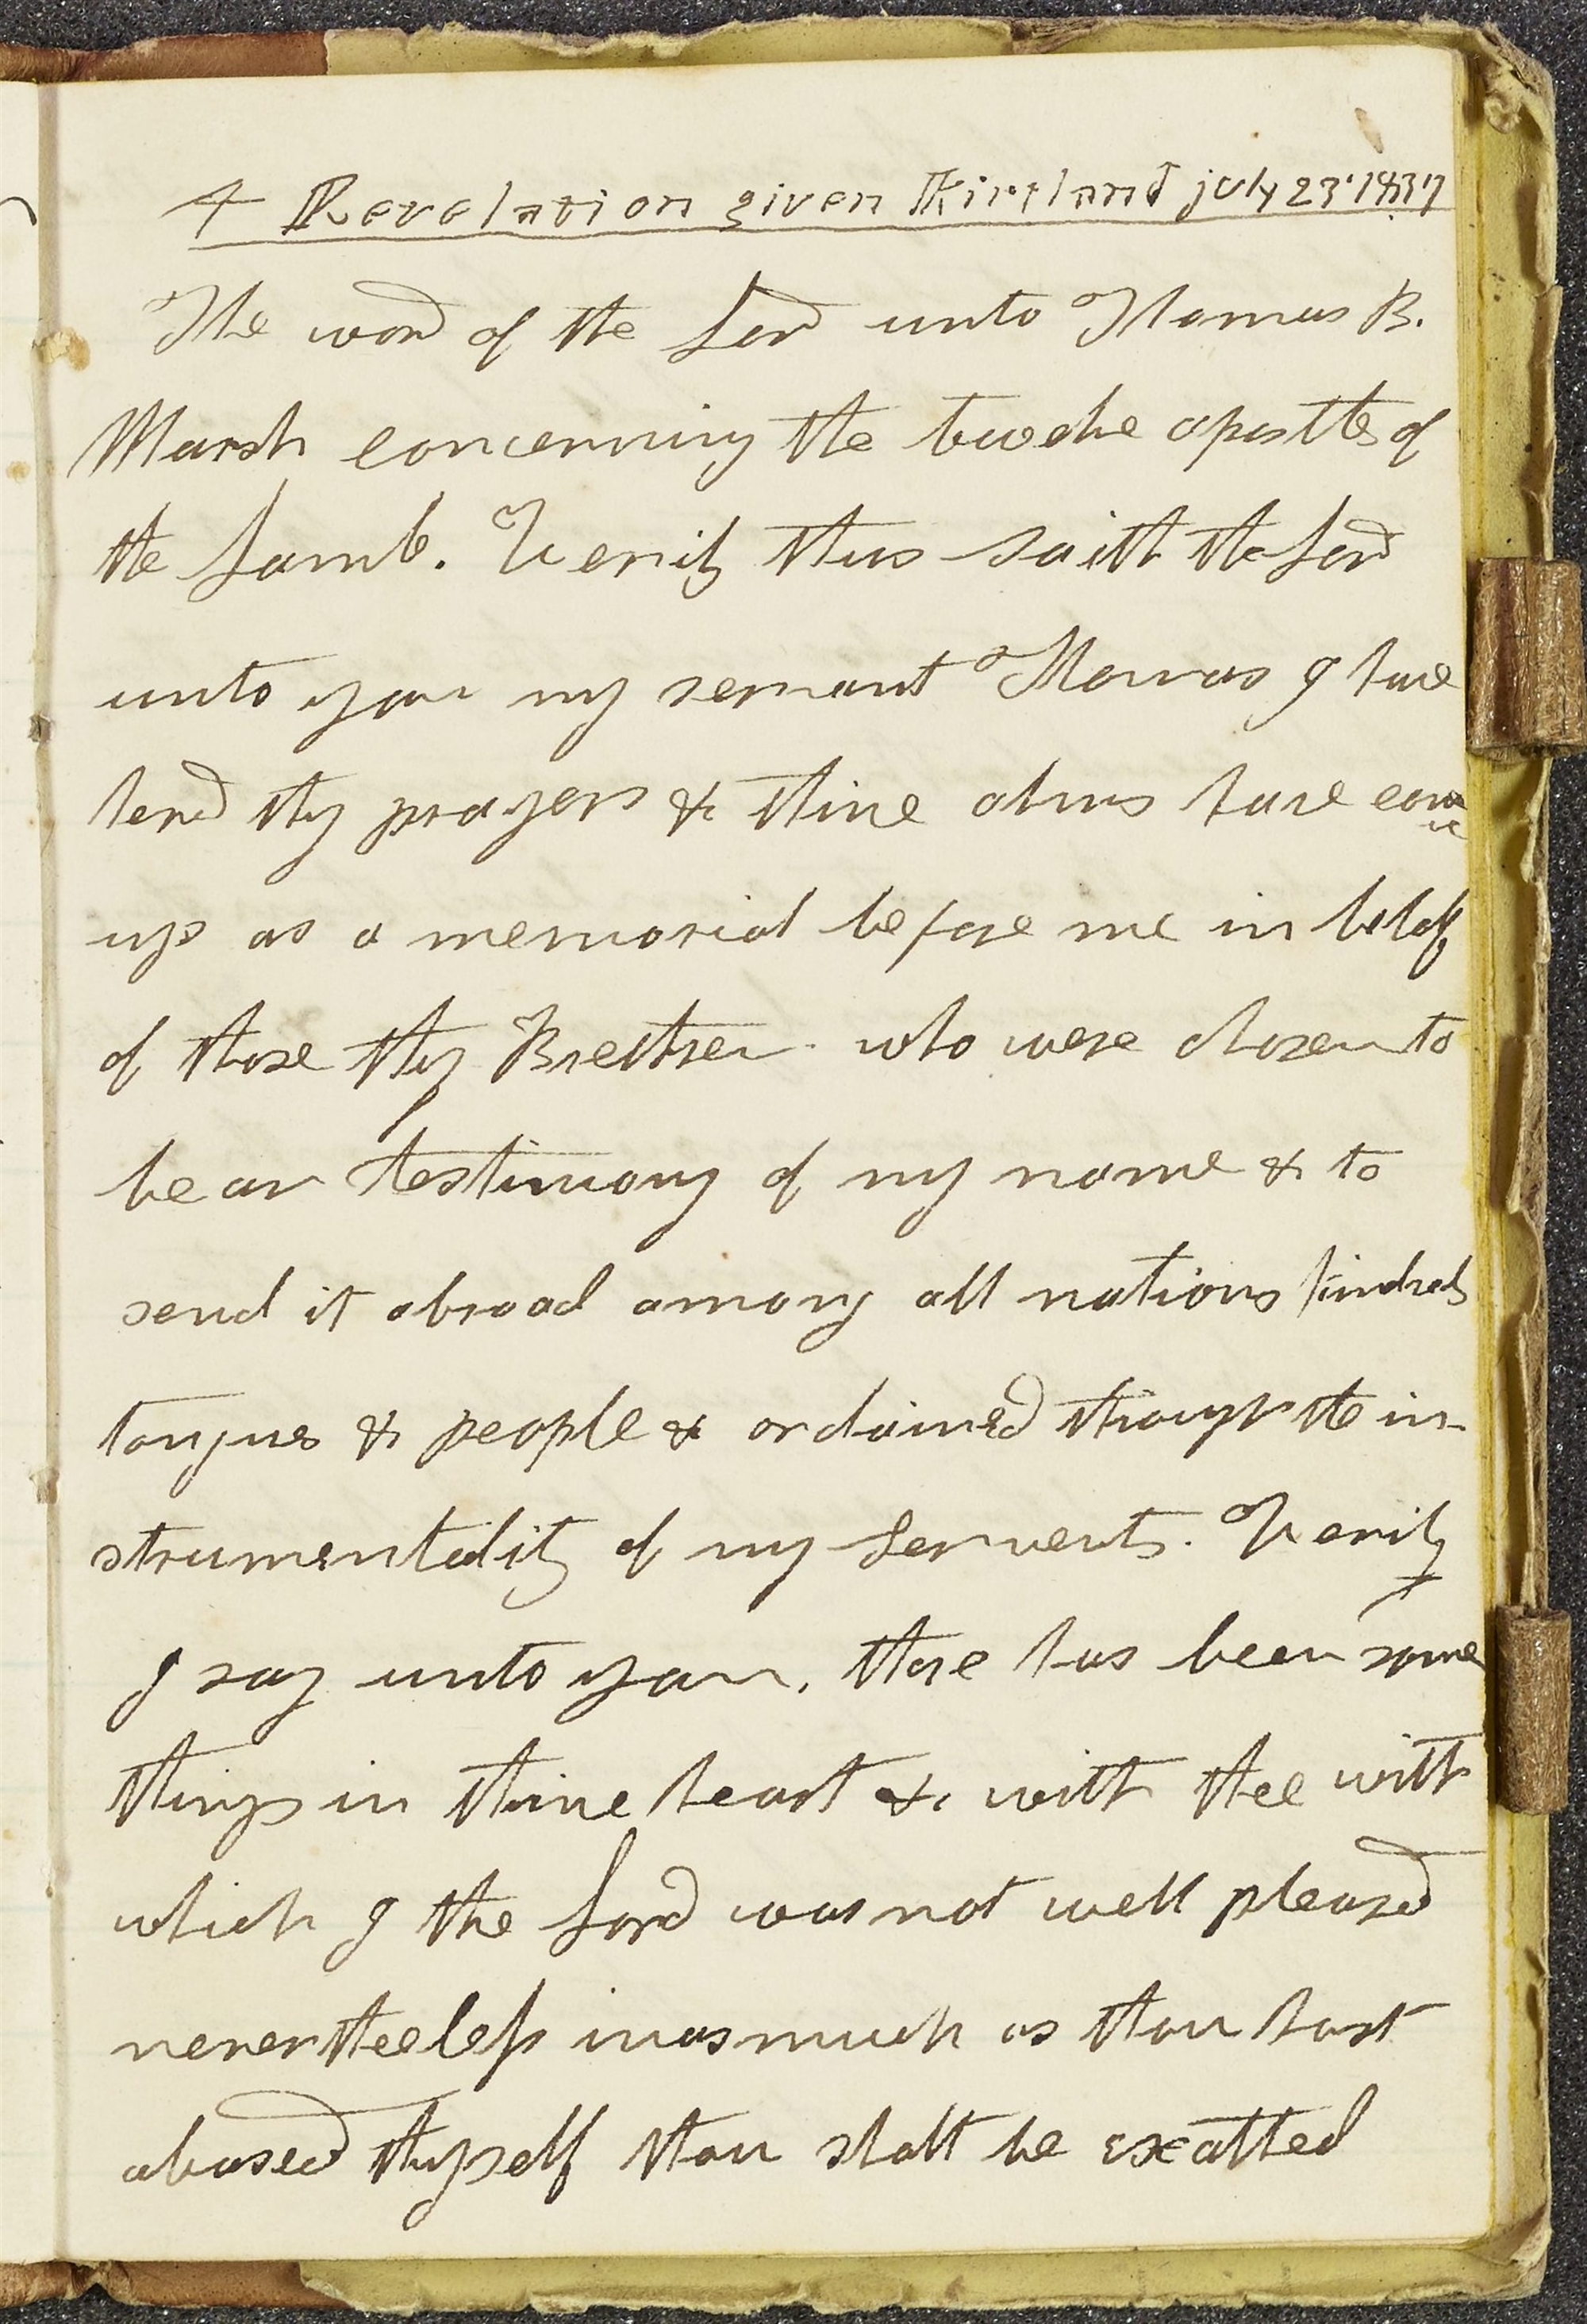 A Revelation given Kirtland july 23' 1837
The word of the Lord unto Thomas B.
Marsh concerning the twelve apostles of
the Lamb. Verily thus saith the Lord
unto you my servant Thomas I have
herd thy prayers & thine alms have come
up as a memorial before me in behalf
of those thy Brethren who were chosen to
bear testimony of my name & to
send it abroad among all nations kindreds
tongues & people & ordained through the in-
strumentality of my servents. Verily
I say unto you, there has been some
things in thine heart & with thee with
which I the Lord was not well pleased
nevertheeless inasmuch as thou hast
abased thyself thou shalt be exalted